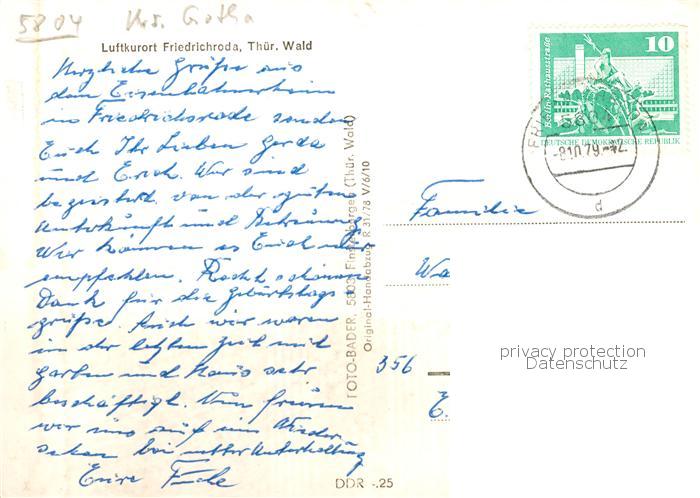 5804 Krs. Gotha
Luftkurort Friedrichroda, Thür. Wald
Herzliche Grüße aus
dem Eisenbahnerheim
in Friedrichroda senden
Euch Ihr Lieben Gerda
und Erich. Wir sind
begeistert von der guten
Unterkunft und Betreuung.
Wir können es Euch nur
empfehlen. Recht schönen
Dank für die Geburtstags
grüße. Auch wir waren
in der letzten Zeit mit
Garten und Haus sehr
beschäftigt. Nun freuen
wir uns auf ein Wieder
sehen bei netter Unterhaltung
Eure
FOTO-BADER, 5803 Finsterbergen (Thür. Wald)
Original-Handabzug R 31/78 V/6/10
DDR -.25
10
Berlin-Rathausstraße
DEUTSCHE DEMOKRATISCHE REPUBLIK
5804
-8.10.79.-12
d
Familie
Wa
356
E.
privacy protection
Datenschutz